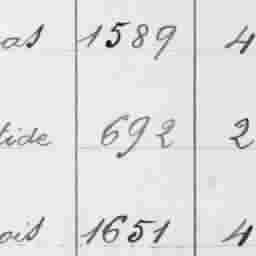 as 1589 4
tide 692 2
ois 1651 4